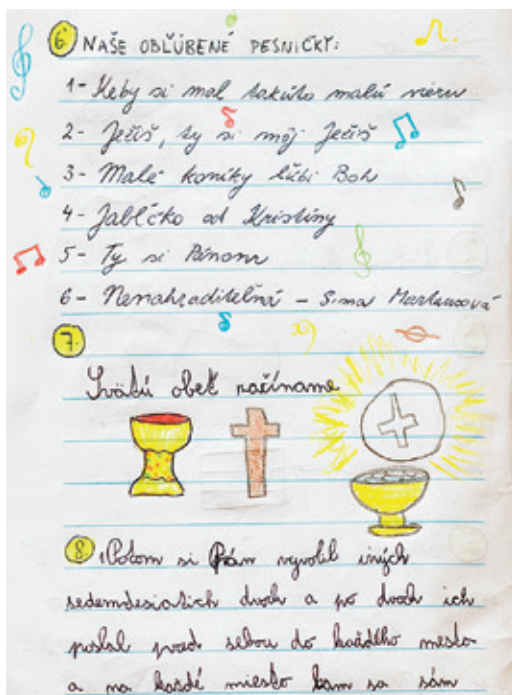 6. NAŠE OBĽÚBENÉ PESNIČKY:
1- Keby si mal takúto malú vieru
2- Ježiš, ty si môj Ježiš
3- Malé koníky ľúbi Boh
4- Jabĺčko od Kristíny
5- Ty si Pánom
6- Nenahraditeľná - Sima Martausová
7.
Svätú obeť začíname
8. Potom si Pán vyvolil iných
sedemdesiatich dvoch a po dvoch ich
poslal pred sebou do každého mesta
a na každé miesto kam sa sám